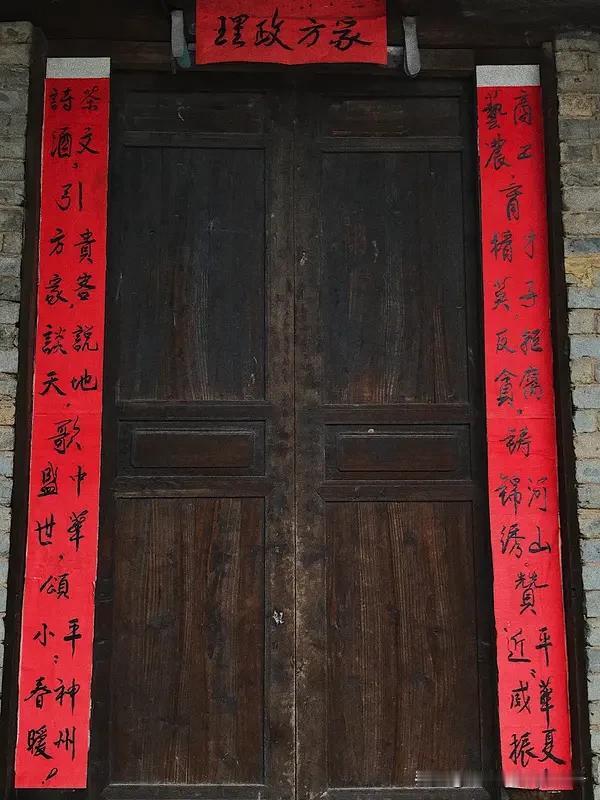 理政方家
商工藝農，育才子精英，拒腐反貪，鑄河山錦綉，贊平近，華夏咸振
茶文詩酒，引貴客方家，說地談天，歌中華盛世，頌平小，神州春暖！